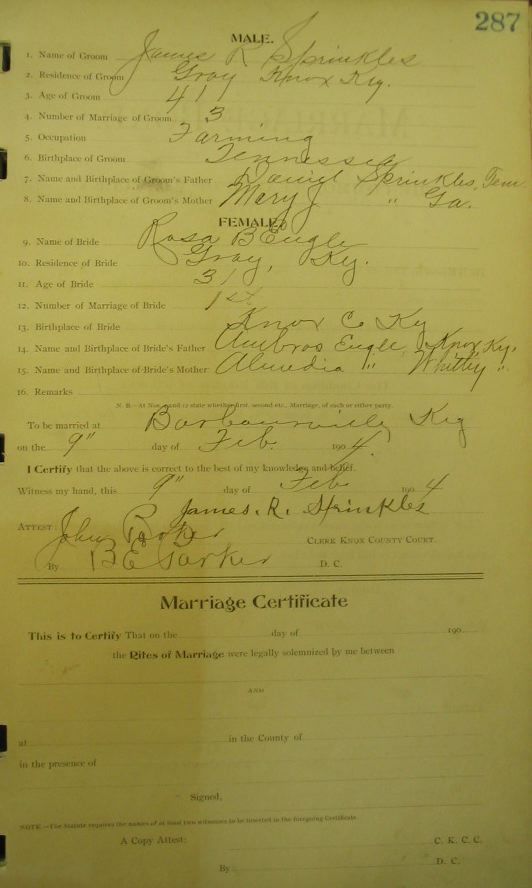 287
MALE.
1. Name of Groom James R Sprinkles
2. Residence of Groom Gray Knox Ky.
3. Age of Groom 41
4. Number of Marriage of Groom 3
5. Occupation Farming
6. Birthplace of Groom Tennessee
7. Name and Birthplace of Groom's Father Daniel Sprinkles, Tenn
8. Name and Birthplace of Groom's Mother Mary J " Ga.
FEMALE.
9. Name of Bride Rosa B Engle
10. Residence of Bride Gray, Ky.
11. Age of Bride 31
12. Number of Marriage of Bride 1st
13. Birthplace of Bride Knox Co Ky
14. Name and Birthplace of Bride's Father Ambros Engle, Knox, Ky.
15. Name and Birthplace of Bride's Mother Almedia " Whitley "
16. Remarks
N. B.—At Nos. 4 and 12 state whether first, second etc., Marriage, of each or either party.
To be married at Barbourville Ky
on the 9" day of Feb. 1904
I Certify that the above is correct to the best of my knowledge and belief.
Witness my hand, this 9" day of Feb 1904
James. R. Sprinkles
ATTEST: John
CLERK KNOX COUNTY COURT.
By B E Parker D. C.
Marriage Certificate
This is to Certify That on the day of 190
the Rites of Marriage were legally solemnized by me between
AND
at in the County of
in the presence of
Signed,
NOTE.—The Statute requires the names of at least two witnesses to be inserted in the foregoing Certificate.
A Copy Attest: C. K. C. C.
By D. C.